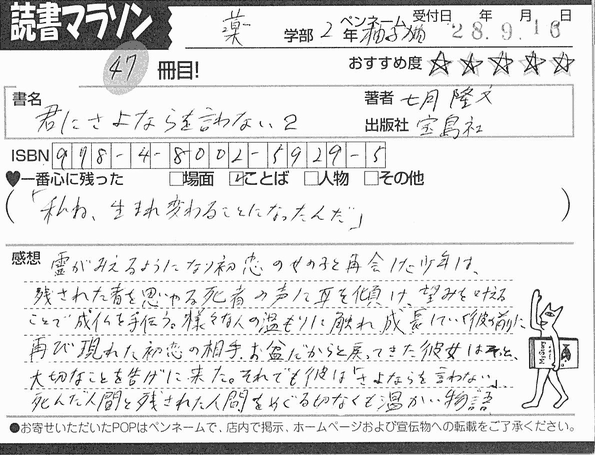 読書マラソン
薬 学部 2年 ペンネーム 柚子猫 受付日 年 月 日 28.9.16
47 冊目! おすすめ度 ☆☆☆☆☆
書名 君にさよならを言わない2 著者 七月隆文
出版社 宝島社
ISBN 978-4-8002-5929-5
♥一番心に残った □場面 ☑ことば □人物 □その他
(「私ね、生まれ変わることになったんだ」)
感想 霊がみえるようになり初恋の女の子と再会した少年は、
残された者を思いやる死者の声に耳を傾け、望みを叶える
ことで成仏を手伝う。様々な人の温もりに触れ、成長していく彼の前に
再び現れた初恋の相手。お盆だからと戻ってきた彼女はそっと、
大切なことを告げに来た。それでも彼は「さよならを言わない」
死んだ人間と残された人間をめぐる切なくも温かい物語
●お寄せいただいたPOPはペンネームで、店内で掲示、ホームページおよび宣伝物への転載をご了承ください。